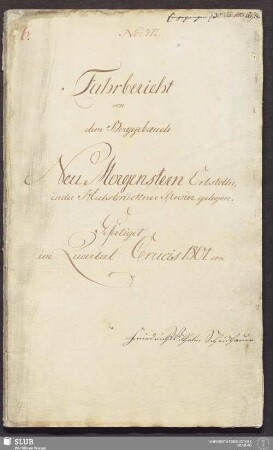 No: 412.
Fahrbericht
von
dem Berggebäude
Neu Morgenstern Erbstolln,
in der Halsbrückner Revier gelegen.
Gefertiget
im Quartal Crucis 1801 von
Friedrich Wilhelm
SLUB
Wir führen Wissen.